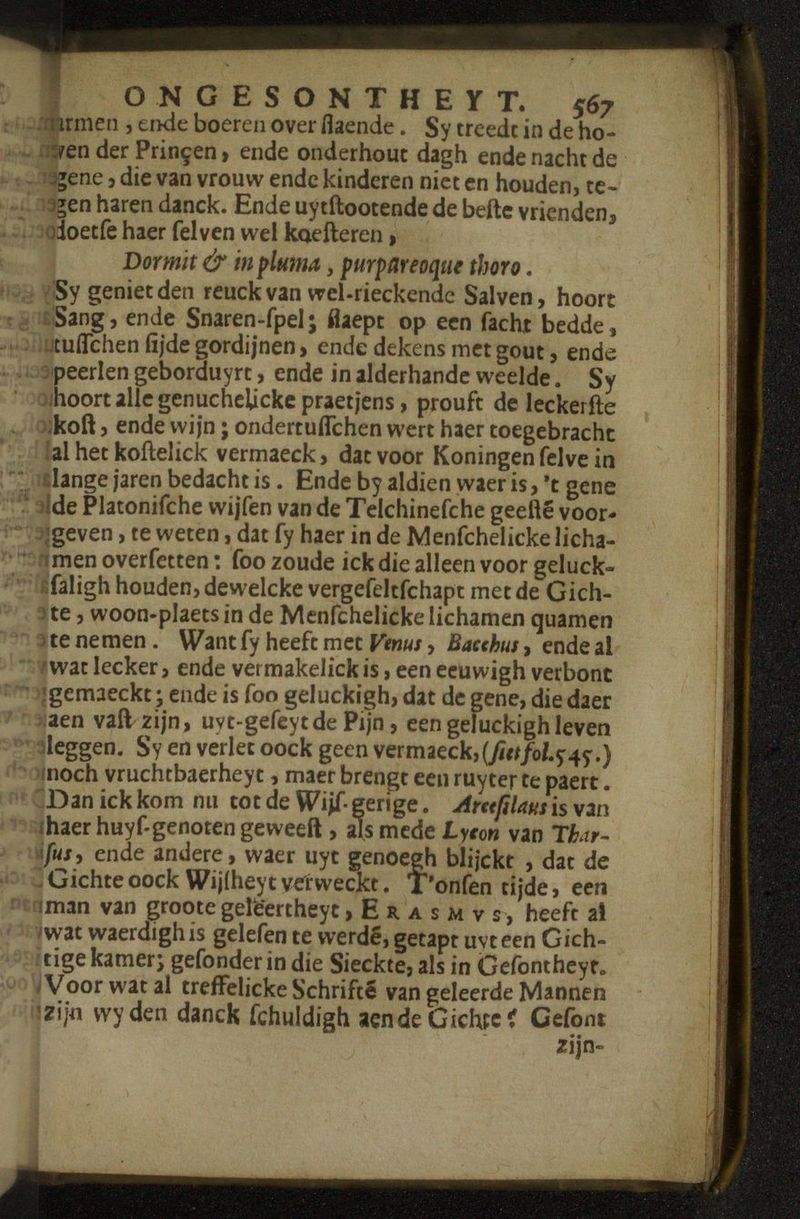 ONGESONTHEYT. 567
armen, ende boeren over slaende. Sy treedt in de ho-
ven der Prinçen, ende onderhout dagh ende nacht de
gene, die van vrouw ende kinderen niet en houden, te-
gen haren danck. Ende uytstootende de beste vrienden,
doetse haer selven wel koesteren,
Dormit & in pluma, purpareoque thoro.
Sy geniet den reuck van wel-rieckende Salven, hoort
Sang, ende Snaren-spel; slaept op een sacht bedde,
tusschen sijde gordijnen, ende dekens met gout, ende
peerlen geborduyrt, ende in alderhande weelde. Sy
hoort alle genuchelicke praetjens, prouft de leckerste
kost, ende wijn; ondertusschen wert haer toegebracht
al het kostelick vermaeck, dat voor Koningen selve in
lange jaren bedacht is. Ende by aldien waer is, 't gene
de Platonische wijsen van de Telchinesche geesté voor-
geven, te weten, dat sy haer in de Menschelicke licha-
men oversetten: soo zoude ick die alleen voor geluck-
saligh houden, dewelcke vergeseltschapt met de Gich-
te, woon-plaets in de Menschelicke lichamen quamen
te nemen. Want sy heeft met Venus, Bacchus, ende al
wat lecker, ende vermakelick is, een eeuwigh verbont
gemaeckt; ende is soo geluckigh, dat de gene, die daer
aen vast zijn, uyt-geseyt de Pijn, een geluckigh leven
leggen. Sy en verlet oock geen vermaeck, (siet fol. 545.)
noch vruchtbaerheyt, maer brengt een ruyter te paert.
Dan ick kom nu tot de Wijs-gerige. Arcesilaus is van
haer huys-genoten geweest, als mede Lycon van Thar-
sus, ende andere, waer uyt genoegh blijckt, dat de
Gichte oock Wijsheyt verweckt. T'onsen tijde, een
man van groote geleertheyt, ERASMVS, heeft al
wat waerdigh is gelesen te werdé, getapt uyt een Gich-
tige kamer; gesonder in die Sieckte, als in Gesontheyt.
Voor wat al treffelicke Schrifté van geleerde Mannen
zijn wy den danck schuldigh aen de Gichte? Gesont
zijn-